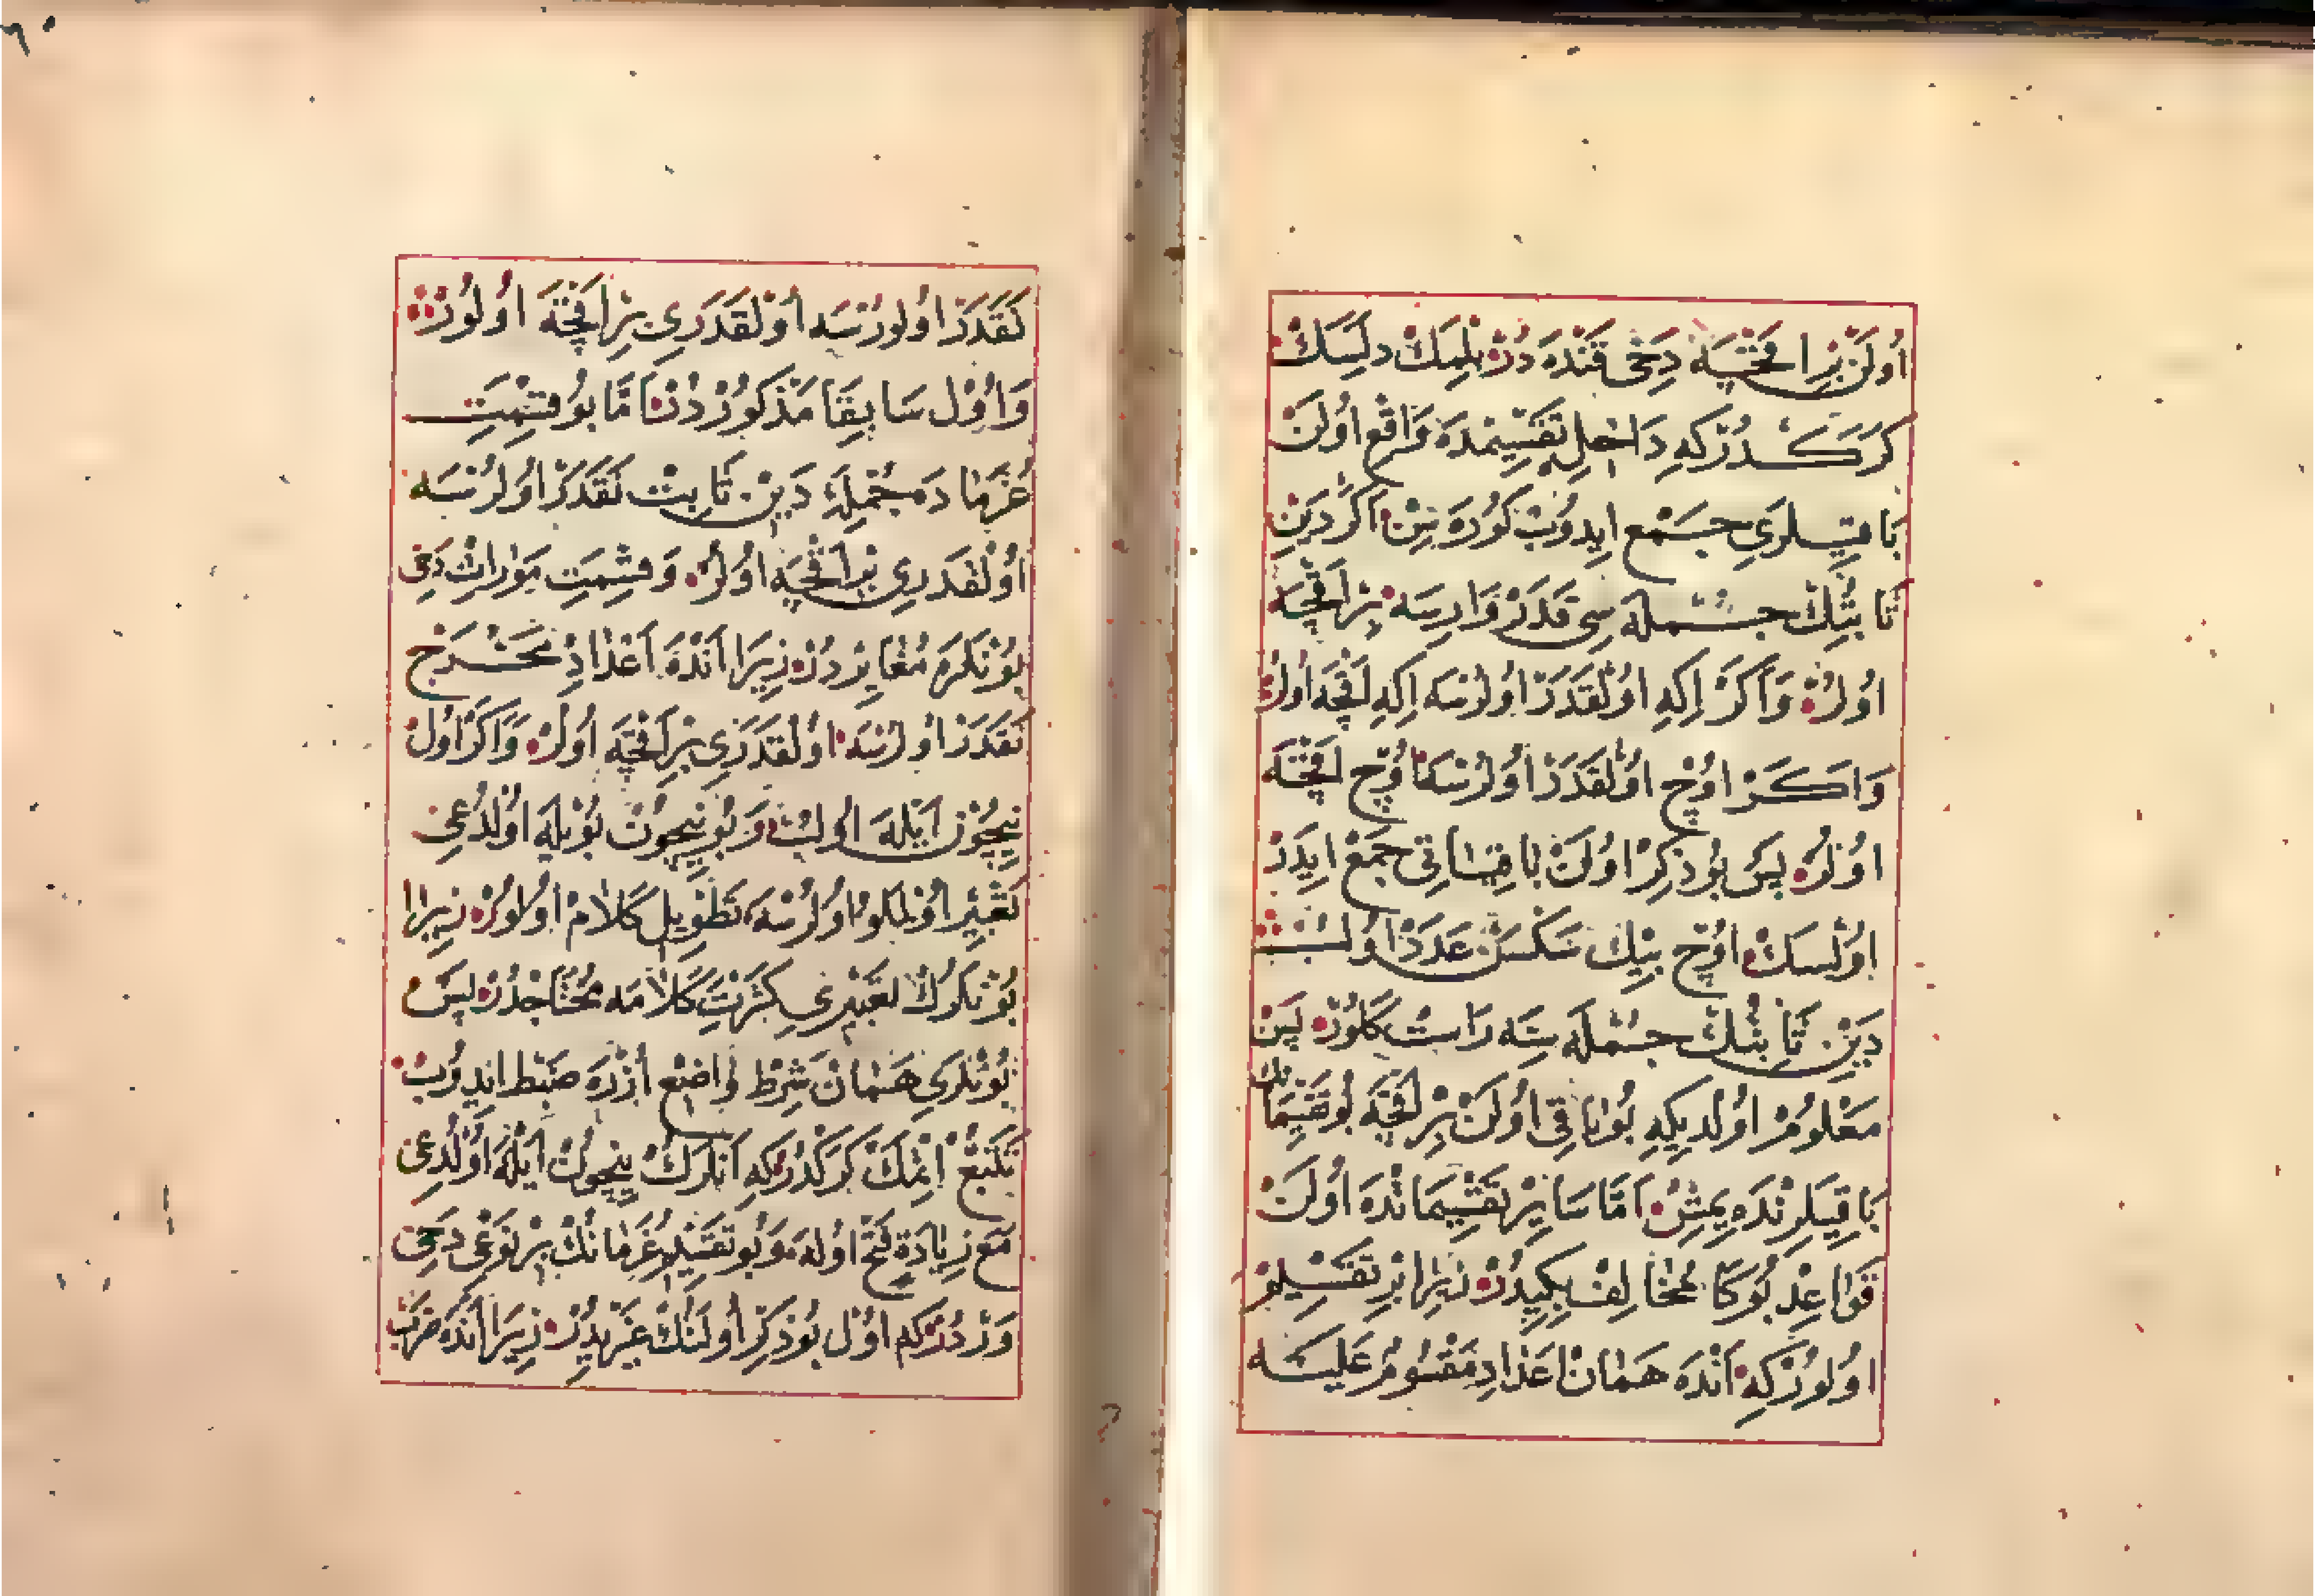 اُولَنْ بِرْ اَقْچَيَه دَخِى قَنْدَه دُرْ بِلْمَكْ دِلَسَكْ
كَرَكْدُرْكِه دَاخِلِ تَقْسِيمْدَه وَاقِع اُولَنْ
بَاقِيلَرِى جَمْع اِيدُوبْ كُورَه سِنْ اَكَرْ دَيْنِ
ثَابِتِكْ جُمْلَه سِى قَدَرْ وَارِسَه بِرْ اَقْچَه
اُولُرْ وَاَكَرْ اِكِه اُولْقَدَرْ اُولُرْسَه اِكِه اَقْچَه اُولُرْ
وَاَكَرْ اُوچْ اُولْقَدَرْ اُولُرْسَه اُوچْ اَقْچَه
اُولُرْ پَسْ بُو ذِكْرْ اُولَنْ بَاقِيَاتِى جَمْعْ اِيدَرْ
اُولْسَكْ اُوچْ بِيكْ سَكْسَنْ عَدَدْ اُولُبْ
دَيْنِ ثَابِتِكْ جُمْلَه سِنَه رَاسْتْ كَلُورْ پَسْ
مَعْلُومْ اُولْدِيكِه بُو بَاقِى اُولَنْ بِرْ اَقْچَه بُو تَقْسِيمَاتِكْ
بَاقِيلَرِنْدَه يِمِشْ اَمَّا سَايِرْ تَقْسِيمَاتْدَه اُولَنْ
قَوَاعِدْ بُوكَا مُخَالِفْ كِبِيدُرْ زِيرَا بِرْ تَقْسِيمْ
اُولُورْكِه اَنْدَه هَمَانْ اَعْدَادِ مَقْسُومْ عَلَيْه
نَقَدَرْ اُولُورْسَه اُولْقَدَرِى بِرْ اَقْچَه اُولُورْ
وَاُولْ سَابِقَا مَذْكُورْدُرْ اَمَّا بُو قِسْمَتِ
غُرَمَادَه جُمْلَه دَيْنِ ثَابِتْ نَقَدَرْ اُولُرْسَه
اُولْقَدَرِى بِرْ اَقْچَه اُولُرْ وَقِسْمَتِ مَوَارِثْ دَخِى
بُونْلَرَه مُغَايِرْدُرْ زِيرَا اَنْدَه اَعْدَادِ مَخْرَجْ
نَقَدَرْ اُولُرْسَه اُولْقَدَرِى بِرْ اَقْچَه اُولُرْ وَاَكَرْ اُولْ
نِيچُونْ اَيْلَه اُولُبْ وَبُو نِيچُونْ بُويْلَه اُولْدُغِى
تَعْبِيرْ اُولُنْمَلُو اُولُرْسَه تَطْوِيلِ كَلَامْ اُولُورْ زِيرَا
بُونْلَرُكْ تَعْبِيرِى كَثْرَتِ كَلَامَه مُحْتَاجْدُرْ پَسْ
بُونْلَرِى هَمَانْ شَرْطِ وَاضِعْ اُزْرَه ضَبْط اِيدُوبْ
تَتَبُّعْ اِتْمَكْ كَرَكْدُرْكِه اَنْلَرُكْ نِيچُونْ اَيْلَه اُولْدُغِى
مَعَ زِيَادَة فَتْح اُولَه وَبُو تَقْسِيمِ غُرَمَانِكْ بِرْ نَوْعِى دَخِى
وَرْدُرْكِمْ اُولْ بُو ذِكْرْ اُولَنَنِكْ غَيْرِيدُرْ زِيرَا اَنْدَه ضَرْبْ